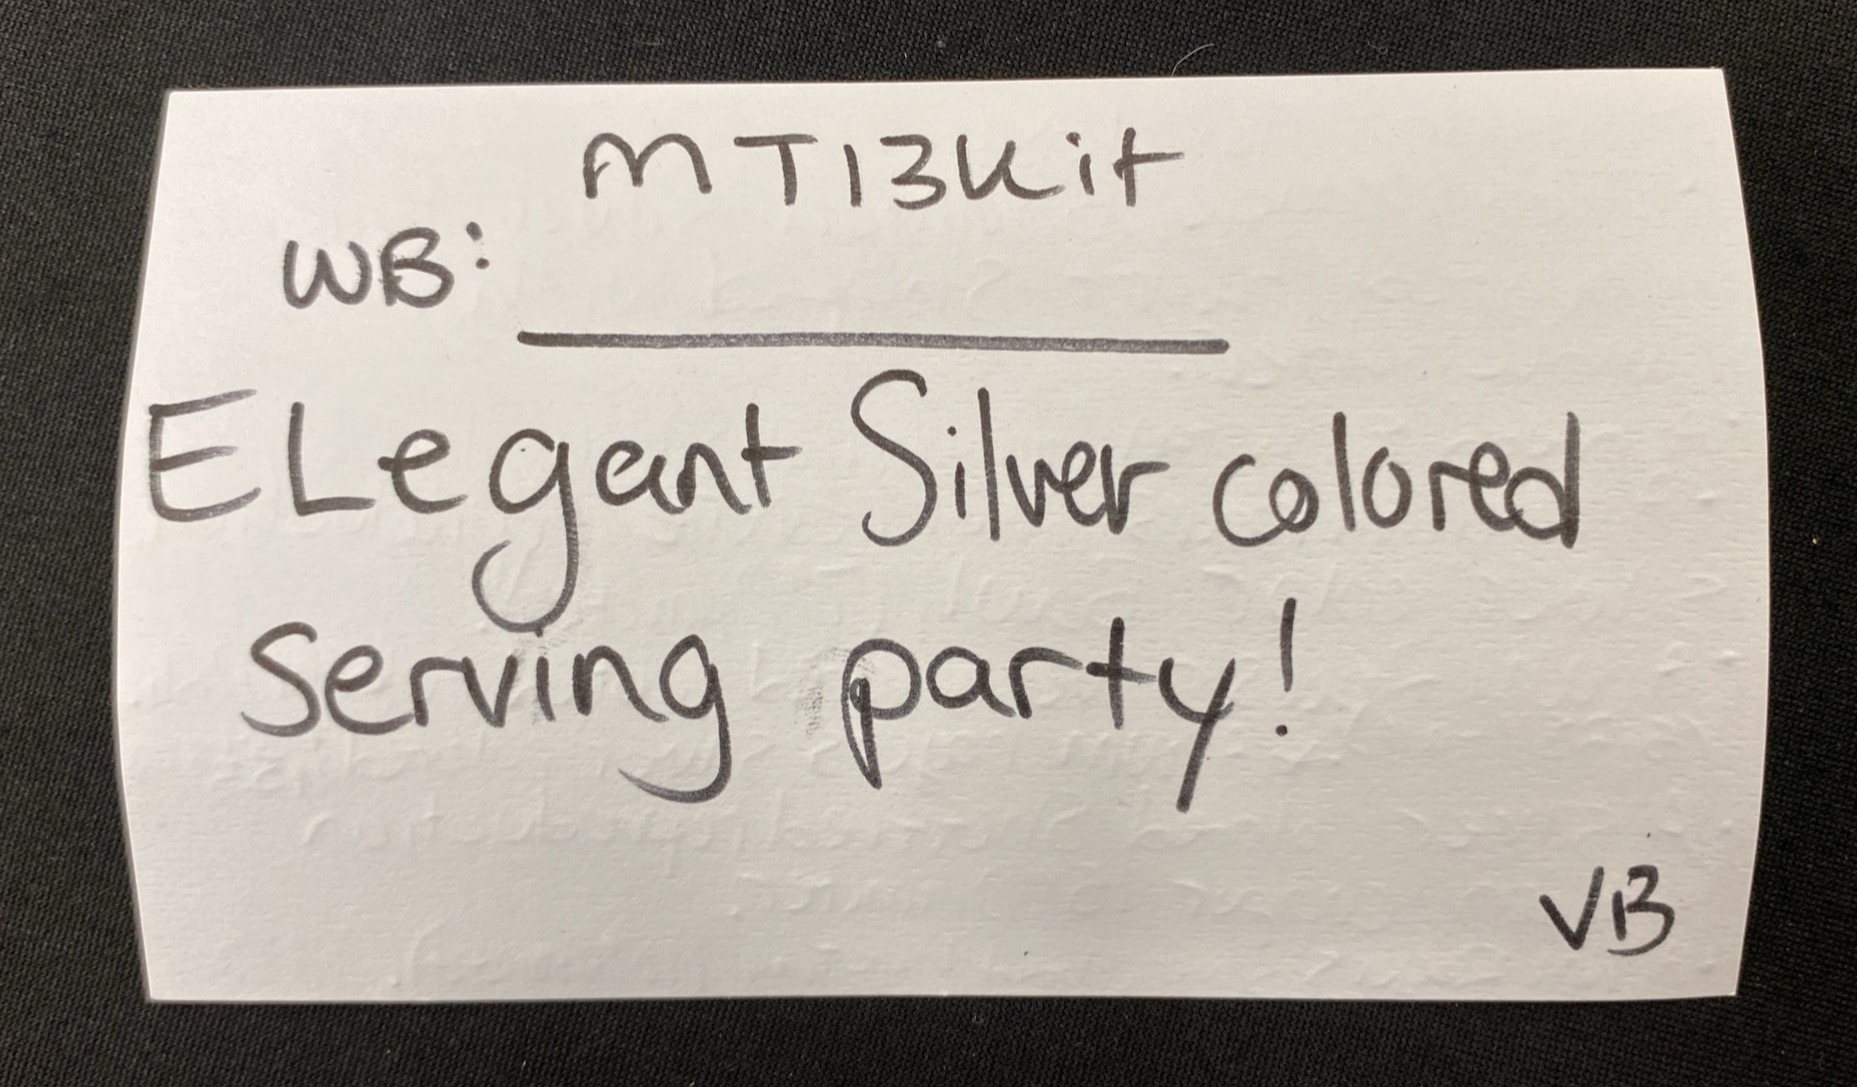 MT13Kit
WB:
ELegant Silver colored
Serving party!
VB